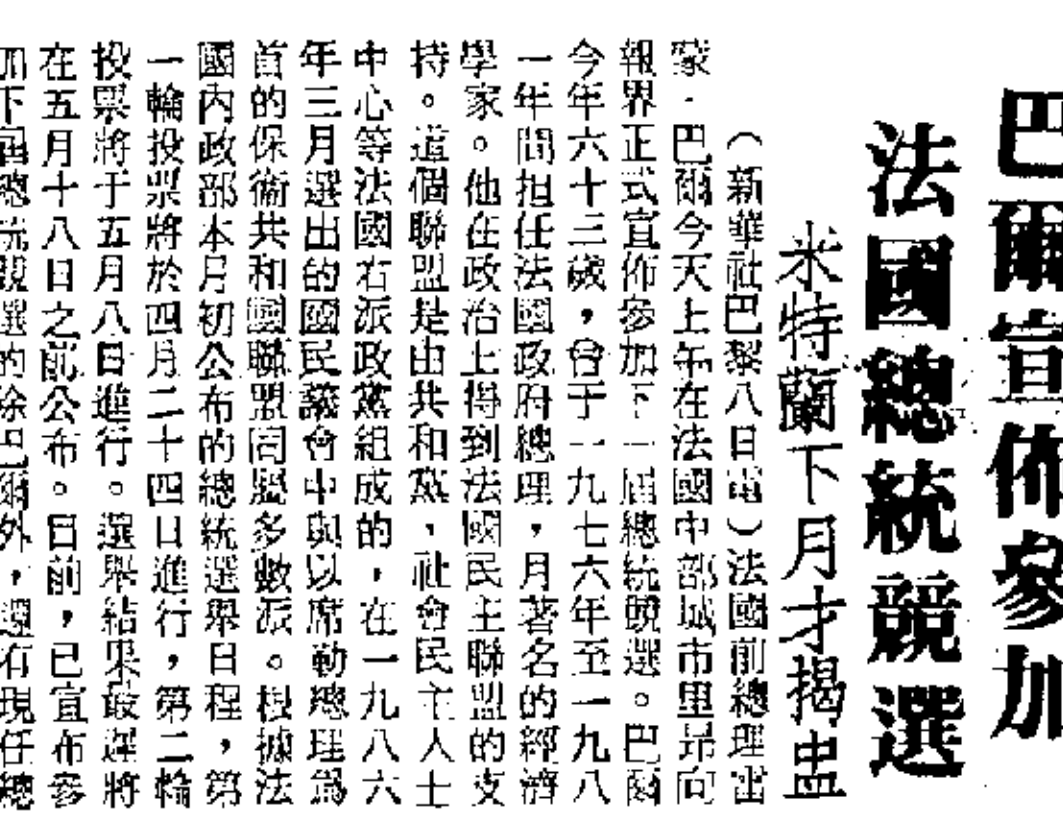 巴爾宣佈參加
法國總統競選
米特蘭下月才揭盅
（新華社巴黎八日電）法國前總理雷
蒙·巴爾今天上午在法國中部城市里昂向
報界正式宣佈參加下一屆總統競選。巴爾
今年六十三歲，曾于一九七六年至一九八
一年間担任法國政府總理，月著名的經濟
學家。他在政治上得到法國民主聯盟的支
持。道個聯盟是由共和黨，社會民主人士
中心等法國右派政黨組成的，在一九八六
年三月選出的國民議會中與以席勒總理為
首的保衛共和國聯盟同屬多數派。根據法
國內政部本月初公布的總統選舉日程，第
一輪投票將於四月二十四日進行，第二輪
投票將于五月八日進行。選舉結果最遲將
在五月十八日之前公布。日前，已宣布參
加下屆總統競選的除巴爾外，還有現任總